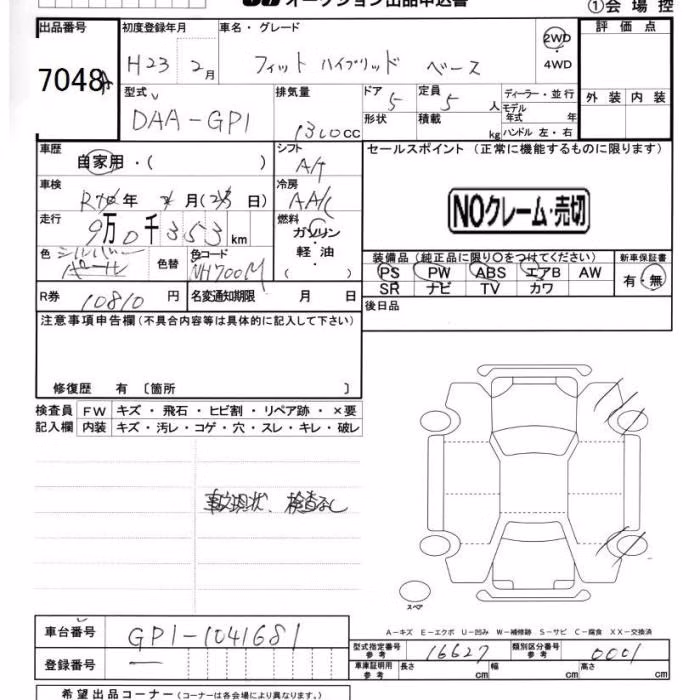 オークション出品申込書
①会場控
出品番号
7048
初度登録年月
H23 2月
車名・グレード
フィット ハイブリッド ベース
2WD
4WD
評価点
外装 内装
型式
DAA-GP1
排気量
1300cc
ドア 5
形状
定員 5人
積載 kg
ディーラー・並行
モデル年式 年
ハンドル 左・右
車歴
自家用・( )
シフト
A/T
車検
年 月( 日)
冷房
AA/C
走行
9万0千353km
燃料
ガソリン・
軽油・
( )
色
シルバー
パール
色替
色コード
NH700M
R券 10810円
名変通知期限 月 日
セールスポイント(正常に機能するものに限ります)
NOクレーム・売切
装備品(純正品に限り○をつけてください)
PS PW ABS エアB AW
SR ナビ TV カワ
新車保証書
有・無
後日品
注意事項申告欄(不具合内容等は具体的に記入して下さい)
修復歴 有 〔箇所 〕
検査員 FW キズ・飛石・ヒビ割・リペア跡・×要
記入欄 内装 キズ・汚レ・コゲ・穴・スレ・キレ・破レ
事故現状、検査なし
スペア
A-キズ E-エクボ U-凹み W-補修跡 S-サビ C-腐食 XX-交換済
車台番号 GP1-1041681
登録番号 ―
型式指定番号参考 16627
類別区分番号参考 0001
車庫証明用参考 長さ cm 幅 cm 高さ cm
希望出品コーナー(コーナーは各会場により異なります。)